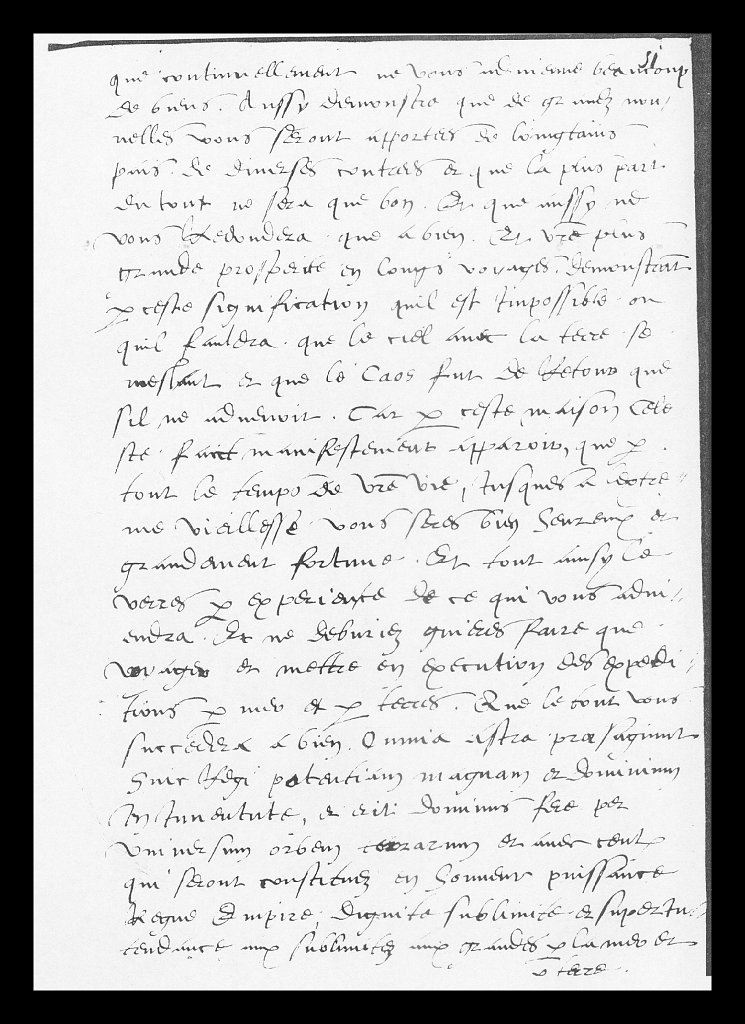 51
que continuellement ne vous advienne beaucoup
de biens. Aussy demonstre que de grandz nou-
uelles vous seront apportees de loingtains
pais. de diverses contrees et que la plus part
du tout ne sera que bon. Et que aussy ne
vous Redondera que a bien. Et vre plus
grande prosperite en longs voyages. demonstrant
p ceste signification quil est Impossible ou
quil fauldra. que le ciel avec la terre. se
meslant et que le Caos fut de Retour que
sil ne advenoit. Car p ceste maison Cele
ste. faict manifestement apparoir, que p
tout le temps de vre vie, Jusques a lextre-
me vieillesse vous seres bien heureux et
grandement fortune. Et tout ainsy le
verres p experience de ce qui vous advi-
endra. Et ne deburiez guieres faire que
voyager et mettre en execution des expedi
tions p mer et p terres. Que le tout vous
succedera a bien. Omnia astra praesagiunt
huic Regi potentiam magnam et dominium
In Juventute, et erit dominus fere per
universum orbem terrarum et avec ceulx
qui seront constituez en honneur puissance
Regne Empire, dignite sublimite et superin-
tendance aux sublimitez aux grandes p la mer et
p terre.